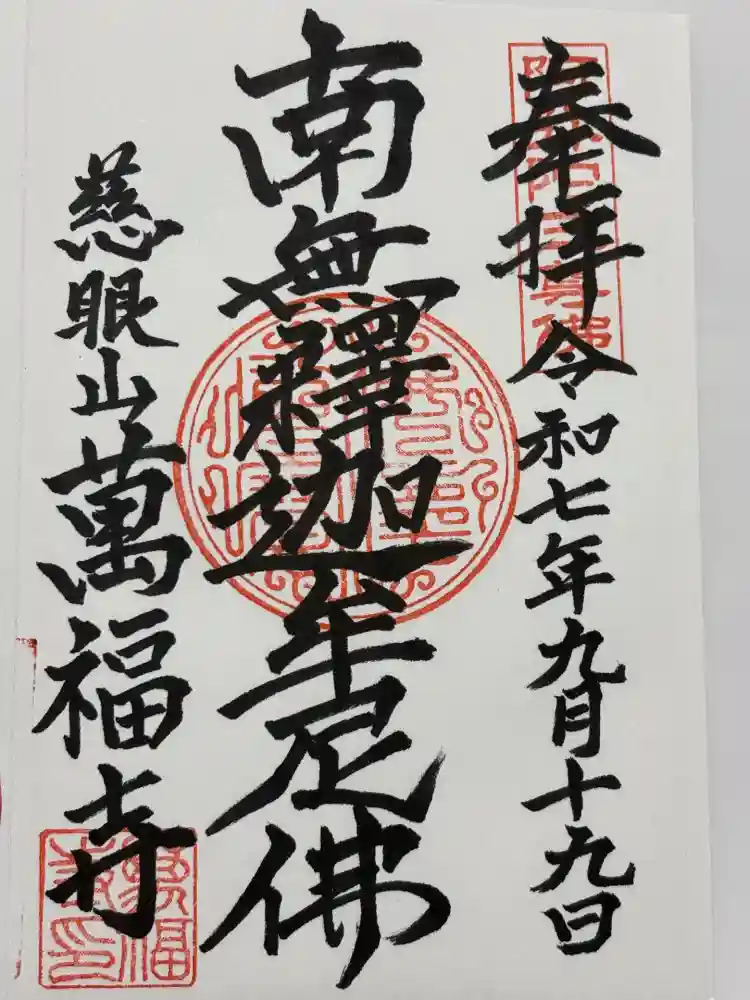 奉拝 令和七年九月十九日
南無釋迦牟尼佛
慈眼山萬福寺